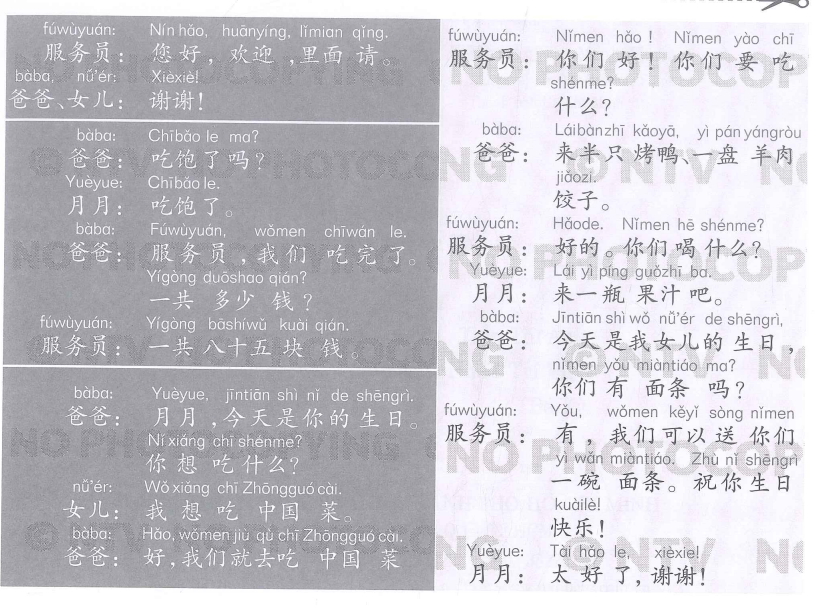 fúwùyuán: Nín hǎo, huānyíng, lǐmian qǐng.
服务员： 您好，欢迎，里面 请。
bàba, nǚ'ér: Xièxie!
爸爸、女儿： 谢谢！
bàba: Chībǎo le ma?
爸爸： 吃饱了吗？
Yuèyue: Chībǎo le.
月月： 吃饱了。
bàba: Fúwùyuán, wǒmen chīwán le.
爸爸： 服务员，我们 吃完了。
Yígòng duōshao qián?
一共 多少 钱？
fúwùyuán: Yígòng bāshíwǔ kuài qián.
服务员： 一共八十五块 钱。
bàba: Yuèyue, jīntiān shì nǐ de shēngrì.
爸爸： 月月，今天是你的 生日。
Nǐ xiǎng chī shénme?
你 想 吃什么？
nǚ'ér: Wǒ xiǎng chī Zhōngguó cài.
女儿： 我 想 吃 中国 菜。
bàba: Hǎo, wǒmen jiù qù chī Zhōngguó cài.
爸爸： 好，我们就去吃 中国 菜
fúwùyuán: Nǐmen hǎo! Nǐmen yào chī
服务员： 你们 好！你们 要 吃
shénme?
什么？
bàba: Láibànzhī kǎoyā, yì pán yángròu
爸爸： 来半只 烤鸭、一盘 羊肉
jiǎozi.
饺子。
fúwùyuán: Hǎode. Nǐmen hē shénme?
服务员： 好的。你们喝 什么？
Yuèyue: Lái yì píng guǒzhī ba.
月月： 来一瓶 果汁 吧。
bàba: Jīntiān shì wǒ nǚ'ér de shēngrì,
爸爸： 今天是我女儿的 生日，
nǐmen yǒu miàntiáo ma?
你们 有 面条 吗？
fúwùyuán: Yǒu, wǒmen kěyǐ sòng nǐmen
服务员： 有，我们可以 送 你们
yì wǎn miàntiáo. Zhù nǐ shēngrì
一碗 面条。祝你生日
kuàilè!
快乐！
Yuèyue: Tài hǎo le, xièxie!
月月： 太 好 了，谢谢！
NO PHOTOCOPYING
© NTV